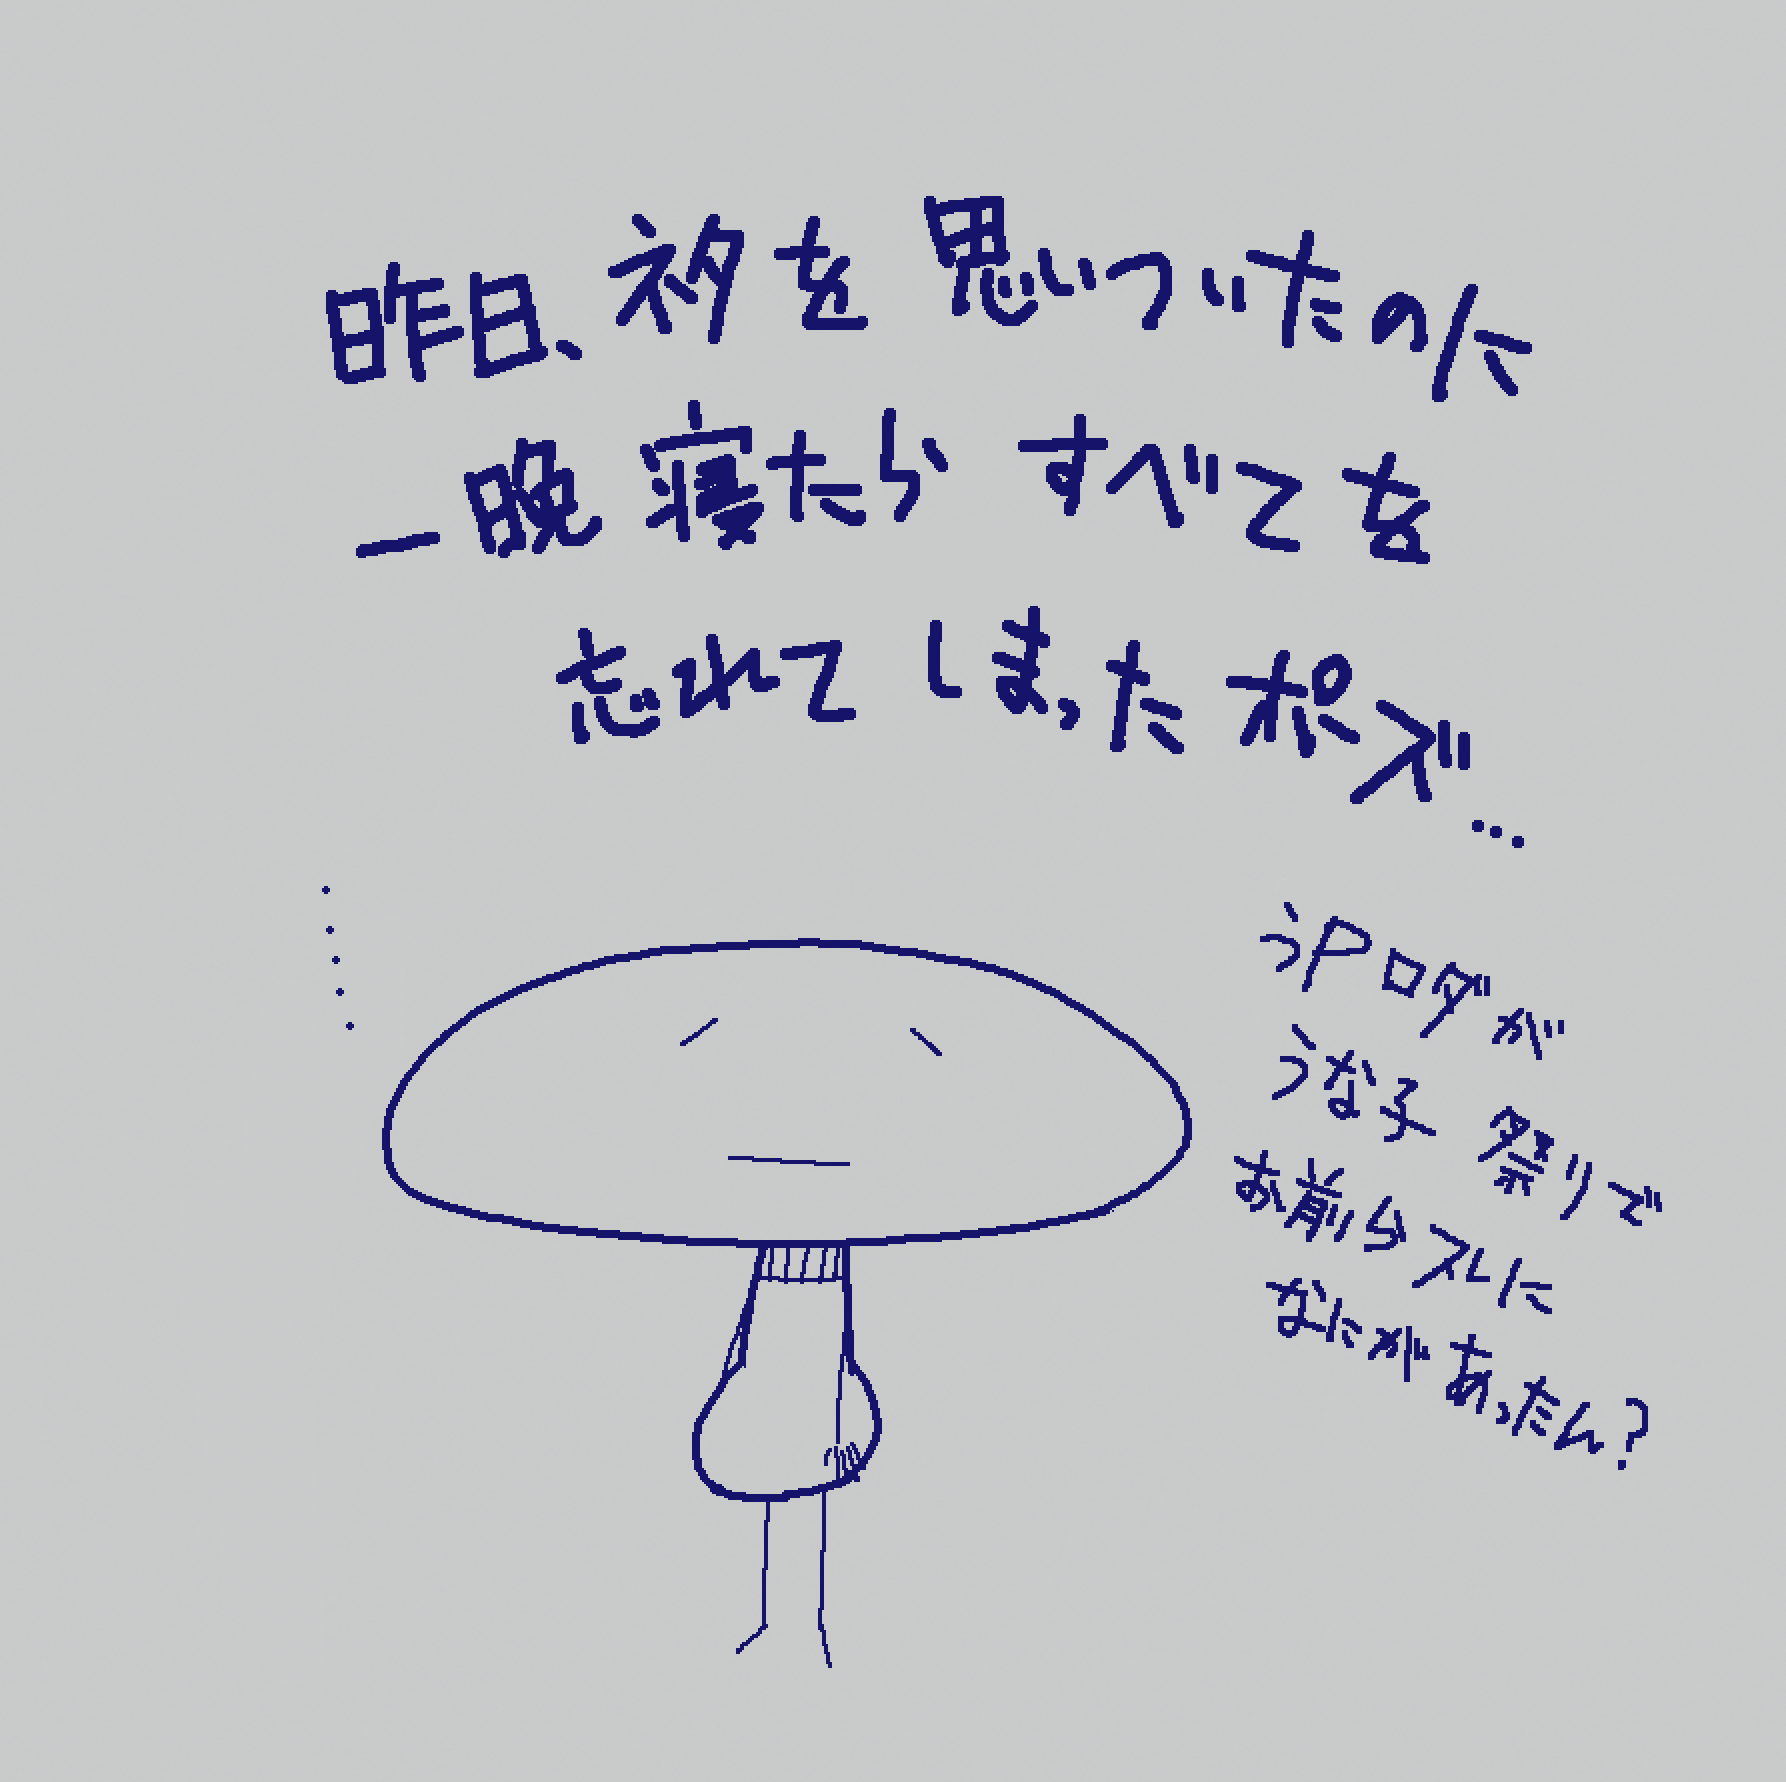 昨日、ネタを思いついたのに
一晩寝たらすべてを
忘れてしまったポズ…
うPロダが
うな子祭りで
お前らスレに
なにがあったん?